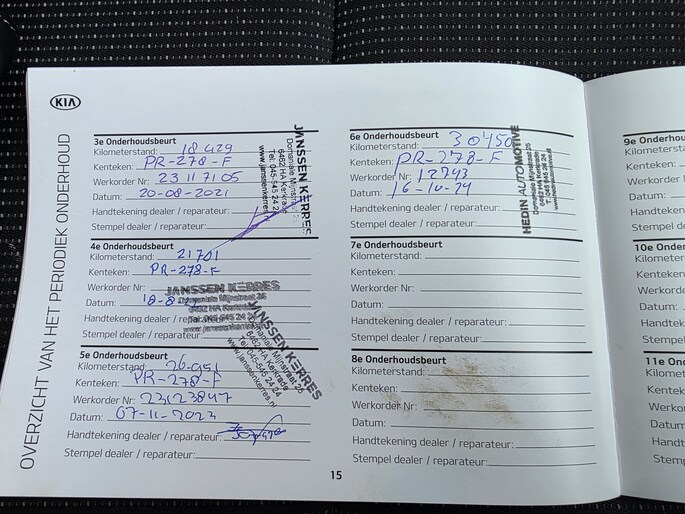 KIA
OVERZICHT VAN HET PERIODIEK ONDERHOUD
3e Onderhoudsbeurt
Kilometerstand: 18429
Kenteken: PR-278-F
Werkorder Nr: 23117105
Datum: 20-08-2021
Handtekening dealer / reparateur:
Stempel dealer / reparateur:
JANSSEN KERRES
Domaniale Mijnstraat 25
6462 HA Kerkrade
Tel: 045-545 24 24
www.janssenkerres.nl
4e Onderhoudsbeurt
Kilometerstand: 21701
Kenteken: PR-278-F
Werkorder Nr:
Datum: 18-8-
Handtekening dealer / reparateur:
Stempel dealer / reparateur:
JANSSEN KERRES
Domaniale Mijnstraat 25
6462 HA Kerkrade
Tel: 045-545 24 24
www.janssenkerres.nl
JANSSEN KERRES
Domaniale Mijnstraat 25
6462 HA Kerkrade
Tel: 045-545 24 24
www.janssenkerres.nl
5e Onderhoudsbeurt
Kilometerstand: 26.951
Kenteken: PR-278-F
Werkorder Nr: 23123847
Datum: 07-11-2023
Handtekening dealer / reparateur:
Stempel dealer / reparateur:
6e Onderhoudsbeurt
Kilometerstand: 30450
Kenteken: PR-278-F
Werkorder Nr: 12743
Datum: 16-10-24
Handtekening dealer / reparateur:
Stempel dealer / reparateur:
HEDIN AUTOMOTIVE
Domaniale Mijnstraat 25
6462 HA Kerkrade
T: 045 545 24 24
7e Onderhoudsbeurt
Kilometerstand:
Kenteken:
Werkorder Nr:
Datum:
Handtekening dealer / reparateur:
Stempel dealer / reparateur:
8e Onderhoudsbeurt
Kilometerstand:
Kenteken:
Werkorder Nr:
Datum:
Handtekening dealer / reparateur:
Stempel dealer / reparateur:
15
9e Onderh
Kilometers
Kenteken:
Werkorder
Datum:
Handteken
Stempel de
10e Onder
Kilometer
Kenteken
Werkorde
Datum:
Handteke
Stempel d
11e Onde
Kilomete
Kenteke
Werkor
Datum:
Handte
Stemp